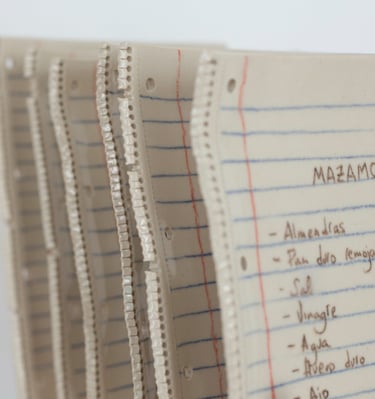 MAZAMO
- Almendras
- Pan duro remoja
- Sal
- Vinagre
- Agua
- Huevo duro
- Ajo